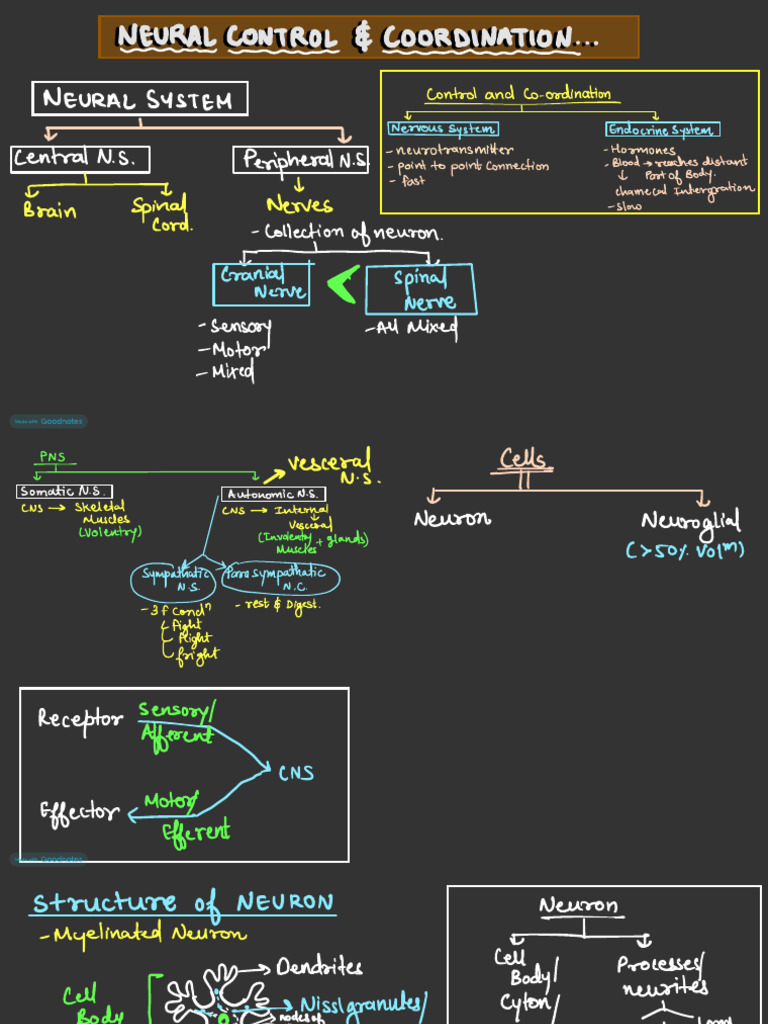 NEURAL CONTROL & COORDINATION...
NEURAL SYSTEM
Central N.S.
Peripheral N.S.
Brain
Spinal
Cord.
Nerves
- Collection of neuron.
Cranial
Nerve
<
Spinal
Nerve
- Sensory
- Motor
- Mixed
- All Mixed
Control and Co-ordination
Nervous System
- neurotransmitter
- point to point Connection
- fast
Endocrine System
- Hormones
- Blood → reaches distant
↓ Part of Body.
chamecal Intergration
- slow
Made with Goodnotes
PNS
Somatic N.S.
CNS → Skeletal
Muscles
(Volentry)
Autonomic N.S.
Vesceral
N.S.
CNS → Internal
↓
Vesceral
(Involenty + glands)
Muscles
Sympathatic
N.S.
- 3f Condⁿ
fight
flight
fright
Parasympathatic
N.C.
- rest & Digest.
Cells
Neuron
Neuroglial
(>50% Volᵐ)
Receptor
Sensory/
Afferent
CNS
Effector
Motor/
Efferent
Made with Goodnotes
Structure of NEURON
- Myelinated Neuron
Cell
Body
Dendrites
Nissl granutes/
nodes of
Neuron
Cell
Body/
Cyton/
Processes/
neurites
Long